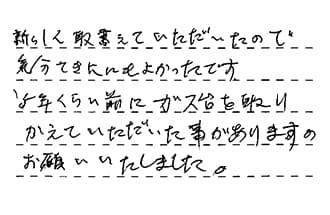 新らしく取替えていただいたので
気分てきにもよかったです
5年くらい前にガス台を取り
かえていただいた事がありますの
お願いいたしました。